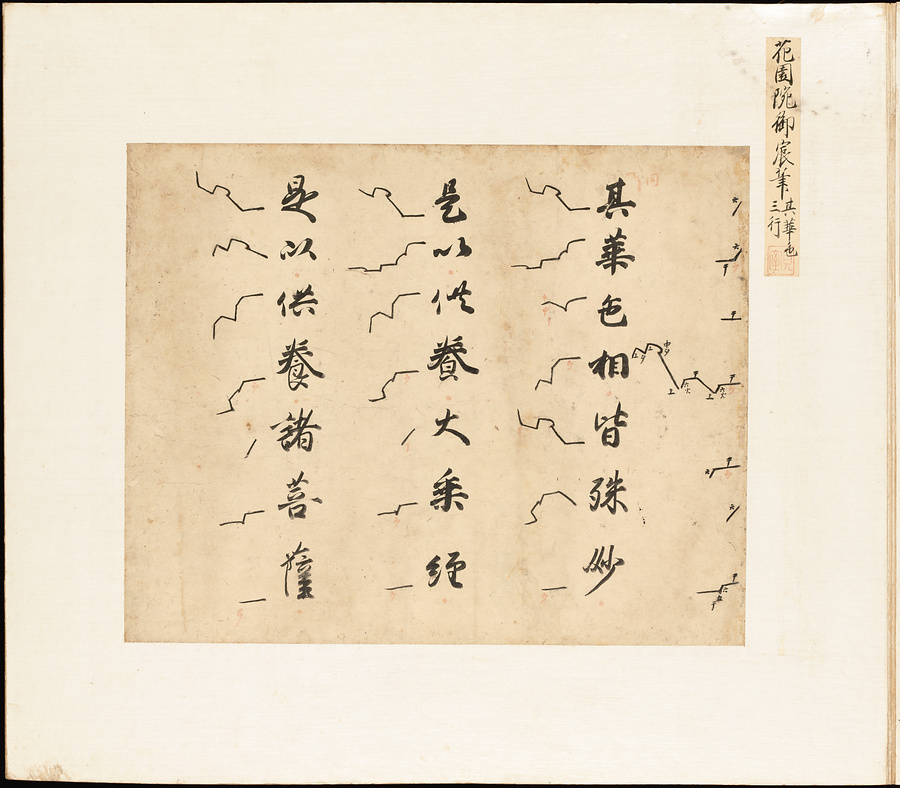 花園院御宸筆 其華色
三行
其華色相皆殊妙
是以供養大乘經
是以供養諸菩薩